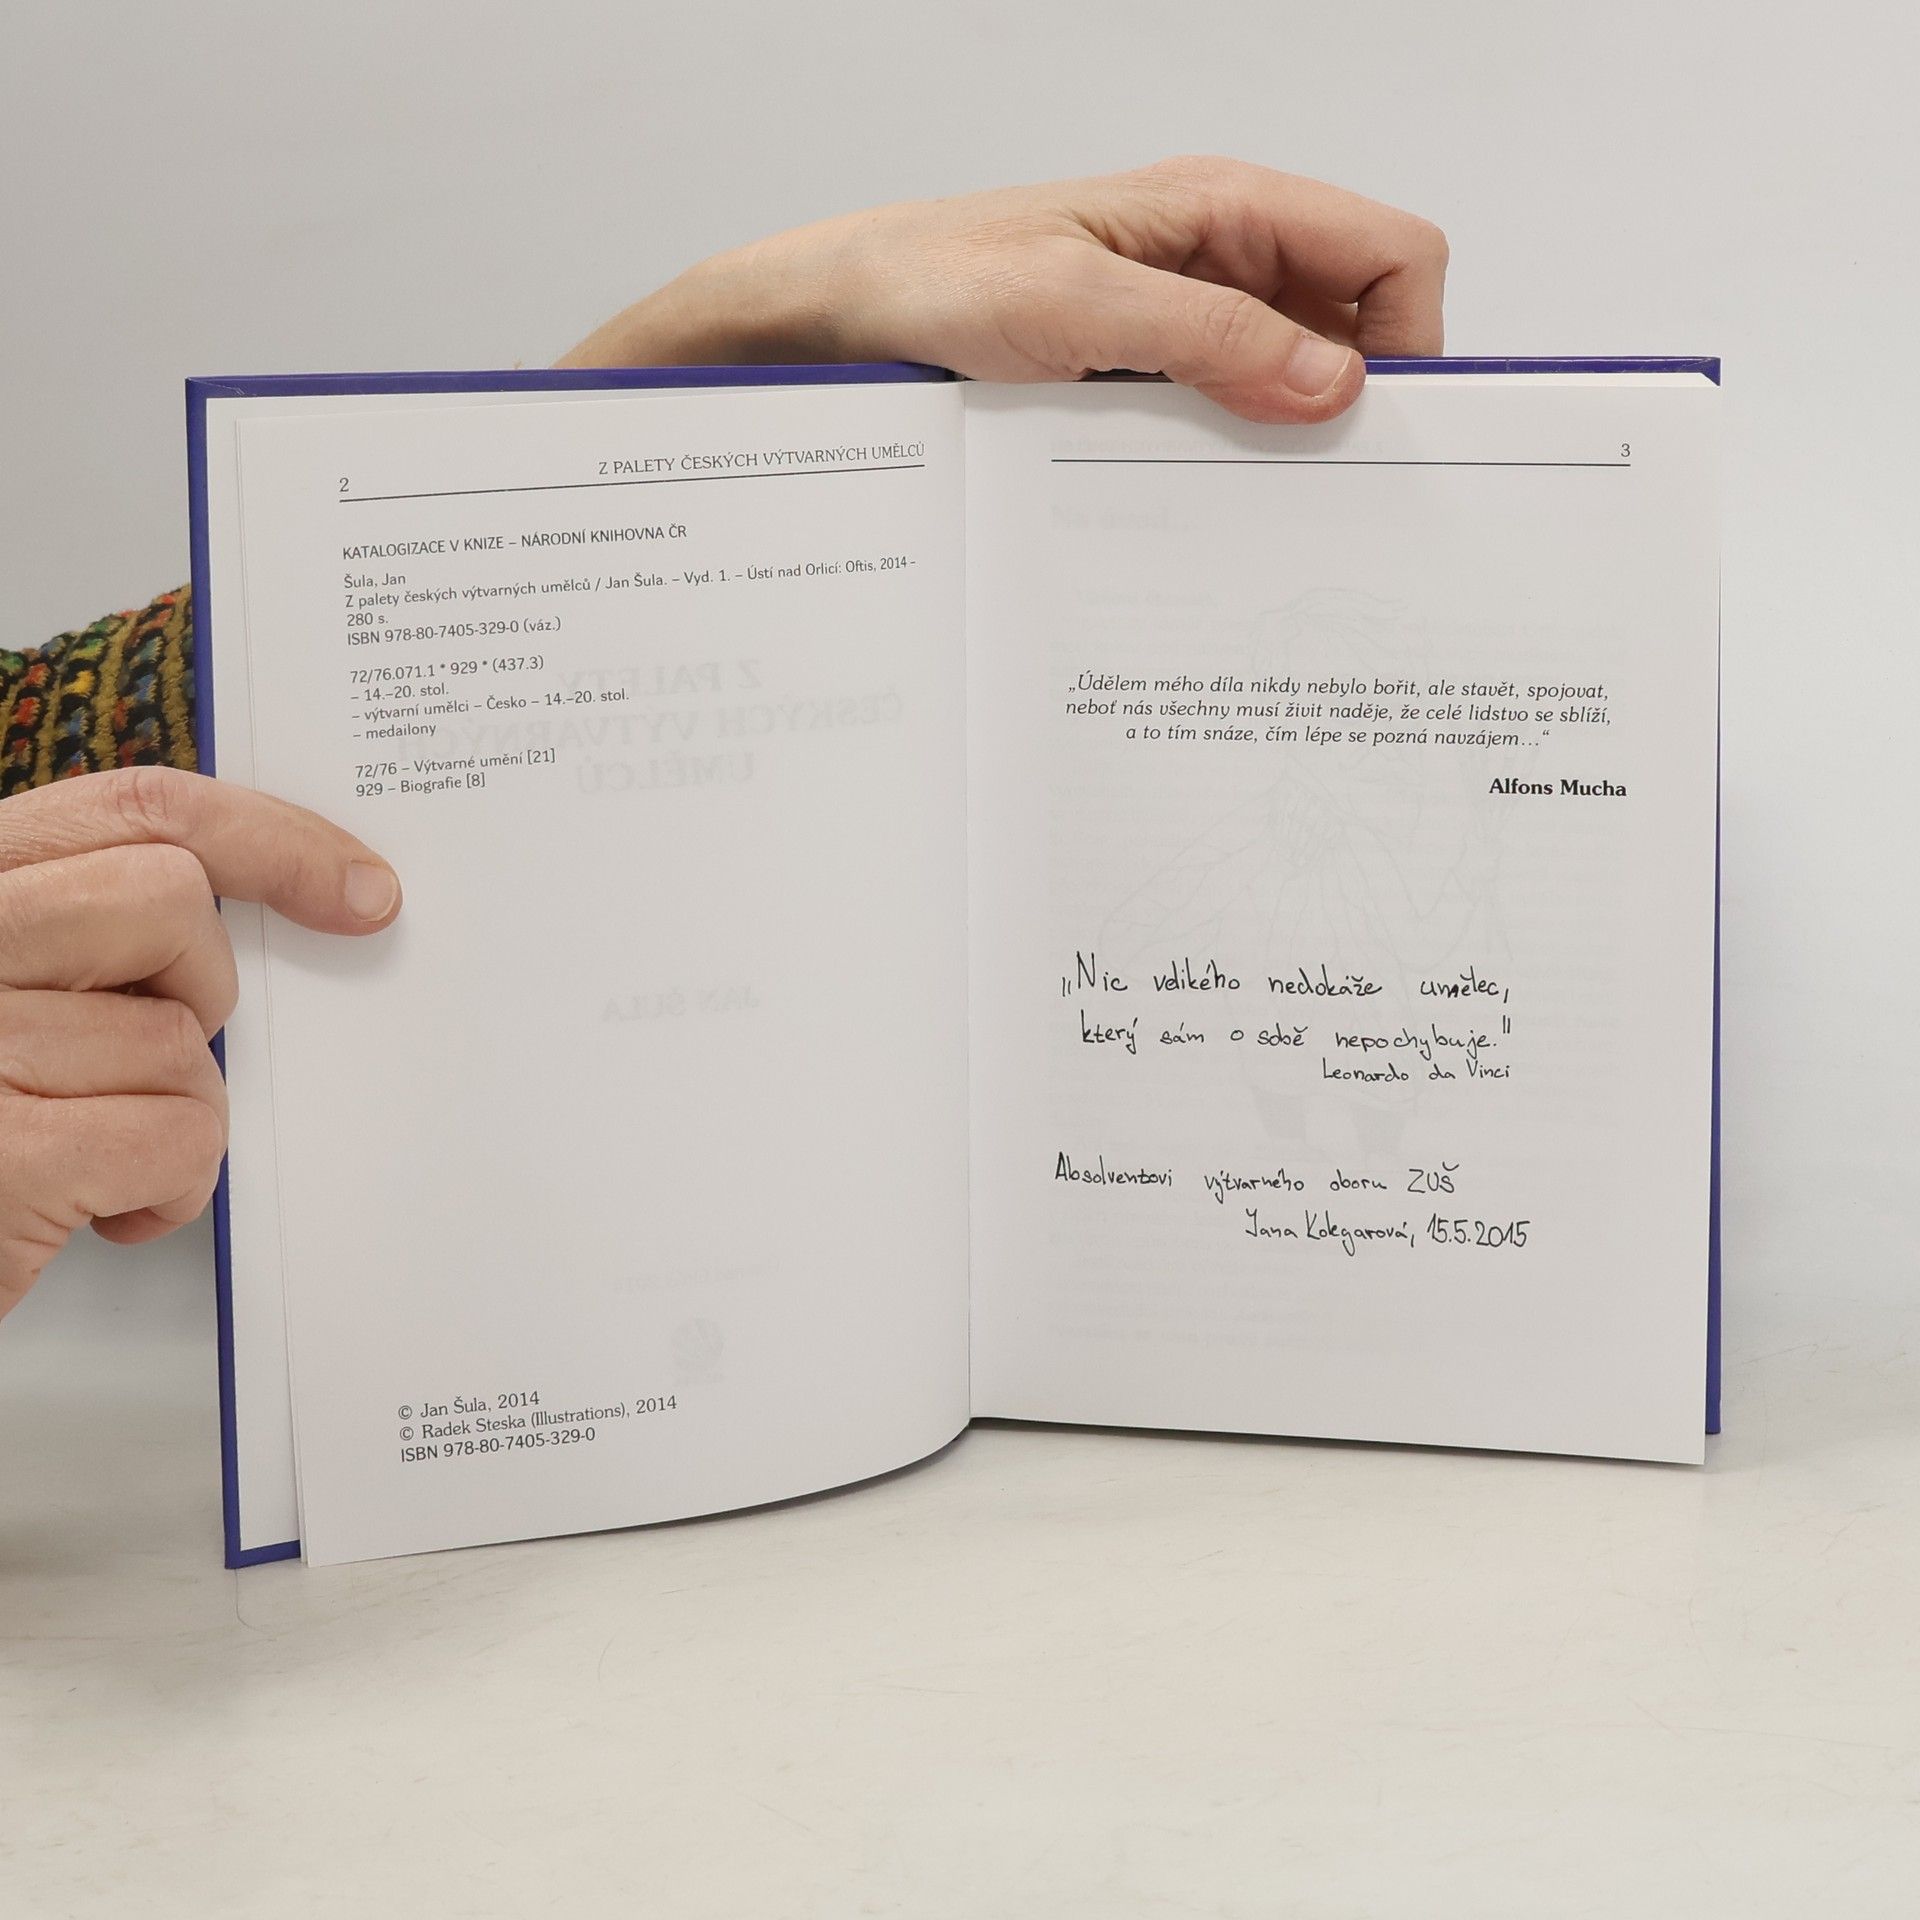 2
Z PALETY ČESKÝCH VÝTVARNÝCH UMĚLCŮ
KATALOGIZACE V KNIZE – NÁRODNÍ KNIHOVNA ČR
Šula, Jan
Z palety českých výtvarných umělců / Jan Šula. – Vyd. 1. – Ústí nad Orlicí: Oftis, 2014 -
280 s.
ISBN 978-80-7405-329-0 (váz.)
72/76.071.1 * 929 * (437.3)
– 14.–20. stol.
– výtvarní umělci – Česko – 14.–20. stol.
– medailony
72/76 – Výtvarné umění [21]
929 – Biografie [8]
© Jan Šula, 2014
© Radek Steska (Illustrations), 2014
ISBN 978-80-7405-329-0
3
„Údělem mého díla nikdy nebylo bořit, ale stavět, spojovat,
neboť nás všechny musí živit naděje, že celé lidstvo se sblíží,
a to tím snáze, čím lépe se pozná navzájem…“
Alfons Mucha
„Nic velikého nedokáže umělec,
který sám o sobě nepochybuje."
Leonardo da Vinci
Absolventovi výtvarného oboru ZUŠ
Jana Kolegarová, 15.5.2015